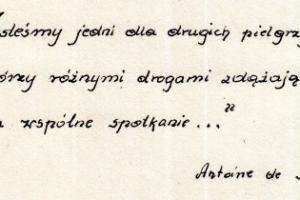 steśmy jedni dla drugich pielgrzy
órzy różnymi drogami zdążają
wspólne spotkanie..."
Antoine de